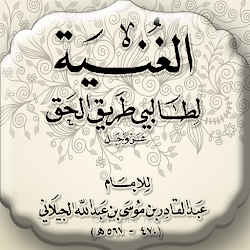 الغُنية
لطالبي طريق الحق
عز وجل
للإمام
عبد القادر بن موسى بن عبد الله الجيلاني
(٤٧٠ - ٥٦١ هـ)